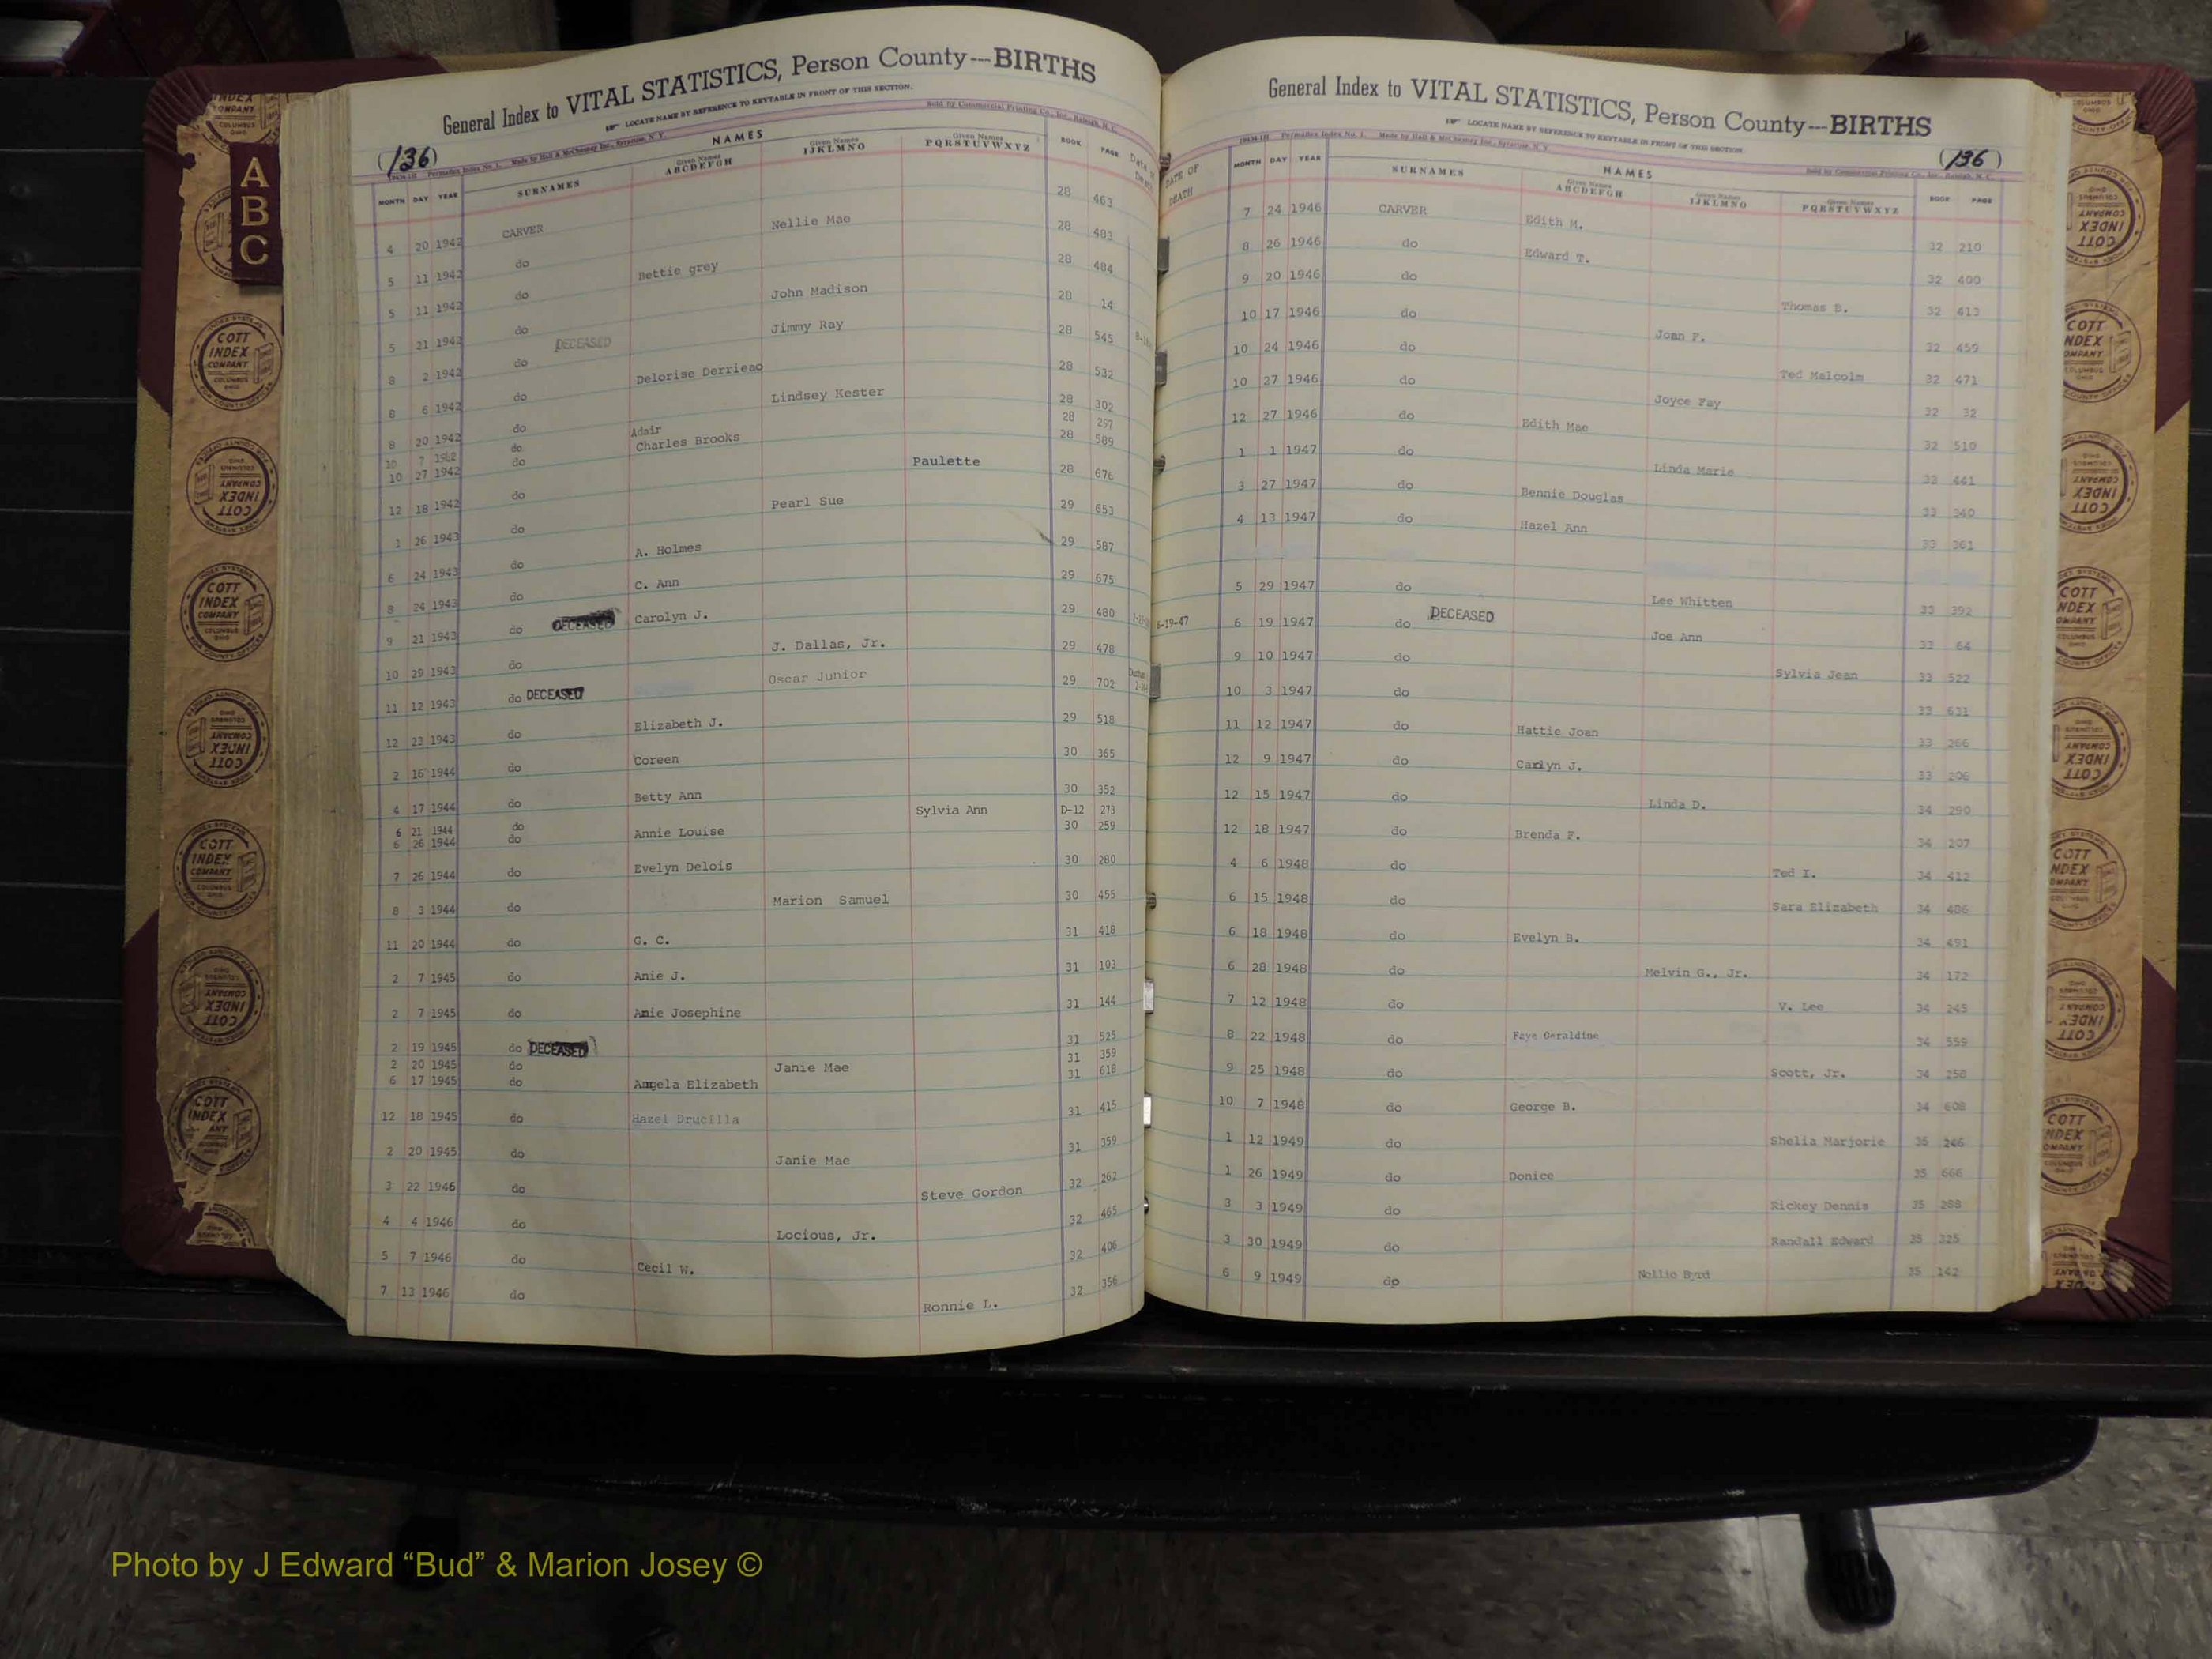 General Index to VITAL STATISTICS, Person County---BIRTHS
LOCATE NAME BY REFERENCE TO KEYTABLE IN FRONT OF THIS SECTION.
(136)
Permadex Index No. 1. Made by Hall & McChesney Inc., Syracuse, N. Y. Sold by Commercial Printing Co., Inc., Raleigh, N. C.
NAMES
MONTH DAY YEAR SURNAMES Given Names ABCDEFGH Given Names IJKLMNO Given Names PQRSTUVWXYZ BOOK PAGE
4 20 1942 CARVER Nellie Mae 28 463
5 11 1942 do Bettie grey 28 483
5 11 1942 do John Madison 28 484
5 21 1942 do DECEASED Jimmy Ray 28 14
8 2 1942 do Delorise Derrieao 28 545
8 6 1942 do Lindsey Kester 28 532
8 20 1942 do Adair 28 302
10 7 1942 do Charles Brooks 28 297
10 27 1942 do Paulette 28 589
12 18 1942 do Pearl Sue 28 676
1 26 1943 do A. Holmes 29 653
6 24 1943 do C. Ann 29 587
8 24 1943 do Carolyn J. 29 675
9 21 1943 do DECEASED J. Dallas, Jr. 29 480
10 29 1943 do Oscar Junior 29 478
11 12 1943 do DECEASED 29 702
12 23 1943 do Elizabeth J. 29 518
2 16 1944 do Coreen 30 365
4 17 1944 do Betty Ann 30 352
6 21 1944 do Sylvia Ann D-12 273
6 26 1944 do Annie Louise 30 259
7 26 1944 do Evelyn Delois 30 280
8 3 1944 do Marion Samuel 30 455
11 20 1944 do G. C. 31 418
2 7 1945 do Anie J. 31 103
2 7 1945 do Amie Josephine 31 144
2 19 1945 do DECEASED 31 525
2 20 1945 do Janie Mae 31 359
6 17 1945 do Angela Elizabeth 31 618
12 18 1945 do Hazel Drucilla 31 415
2 20 1945 do Janie Mae 31 359
3 22 1946 do Steve Gordon 32 262
4 4 1946 do Locious, Jr. 32 465
5 7 1946 do Cecil W. 32 406
7 13 1946 do Ronnie L. 32 356
General Index to VITAL STATISTICS, Person County---BIRTHS
LOCATE NAME BY REFERENCE TO KEYTABLE IN FRONT OF THIS SECTION.
(136)
Permadex Index No. 1. Made by Hall & McChesney Inc., Syracuse, N. Y. Sold by Commercial Printing Co., Inc., Raleigh, N. C.
NAMES
DATE OF DEATH MONTH DAY YEAR SURNAMES Given Names ABCDEFGH Given Names IJKLMNO Given Names PQRSTUVWXYZ BOOK PAGE
7 24 1946 CARVER Edith M. 32 210
8 26 1946 do Edward T. 32 400
9 20 1946 do Thomas B. 32 413
10 17 1946 do Joan F. 32 459
10 24 1946 do Ted Malcolm 32 471
10 27 1946 do Joyce Fay 32 32
12 27 1946 do Edith Mae 32 510
1 1 1947 do Linda Marie 33 441
3 27 1947 do Bennie Douglas 33 340
4 13 1947 do Hazel Ann 33 361
5 29 1947 do Lee Whitten 33 392
6-19-47 6 19 1947 do DECEASED Joe Ann 33 64
9 10 1947 do Sylvia Jean 33 522
10 3 1947 do Hattie Joan 33 631
11 12 1947 do Carlyn J. 33 266
12 9 1947 do 33 206
12 15 1947 do Linda D. 34 290
12 18 1947 do Brenda F. 34 207
4 6 1948 do Ted I. 34 412
6 15 1948 do Sara Elizabeth 34 486
6 18 1948 do Evelyn B. 34 491
6 28 1948 do Melvin G., Jr. 34 172
7 12 1948 do V. Lee 34 245
8 22 1948 do Faye Geraldine 34 559
9 25 1948 do Scott, Jr. 34 258
10 7 1948 do George B. 34 608
1 12 1949 do Shelia Marjorie 35 246
1 26 1949 do Donice 35 666
3 3 1949 do Rickey Dennis 35 288
3 30 1949 do Randall Edward 35 325
6 9 1949 do Nollie Byrd 35 142
A
B
C
COTT INDEX COMPANY COLUMBUS OHIO
Photo by J Edward “Bud” & Marion Josey ©